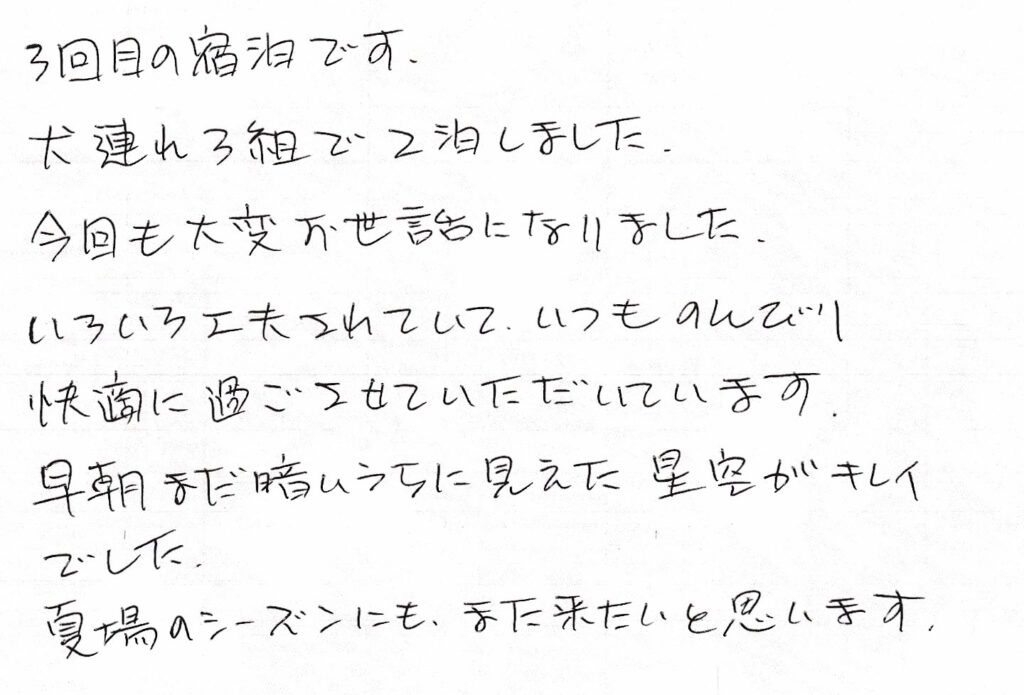 3回目の宿泊です.
犬連れ3組で2泊しました.
今回も大変お世話になりました.
いろいろ工夫されていて、いつものんびり
快適に過ごさせていただいています.
早朝まだ暗いうちに見えた星空がキレイ
でした.
夏場のシーズンにも、また来たいと思います.